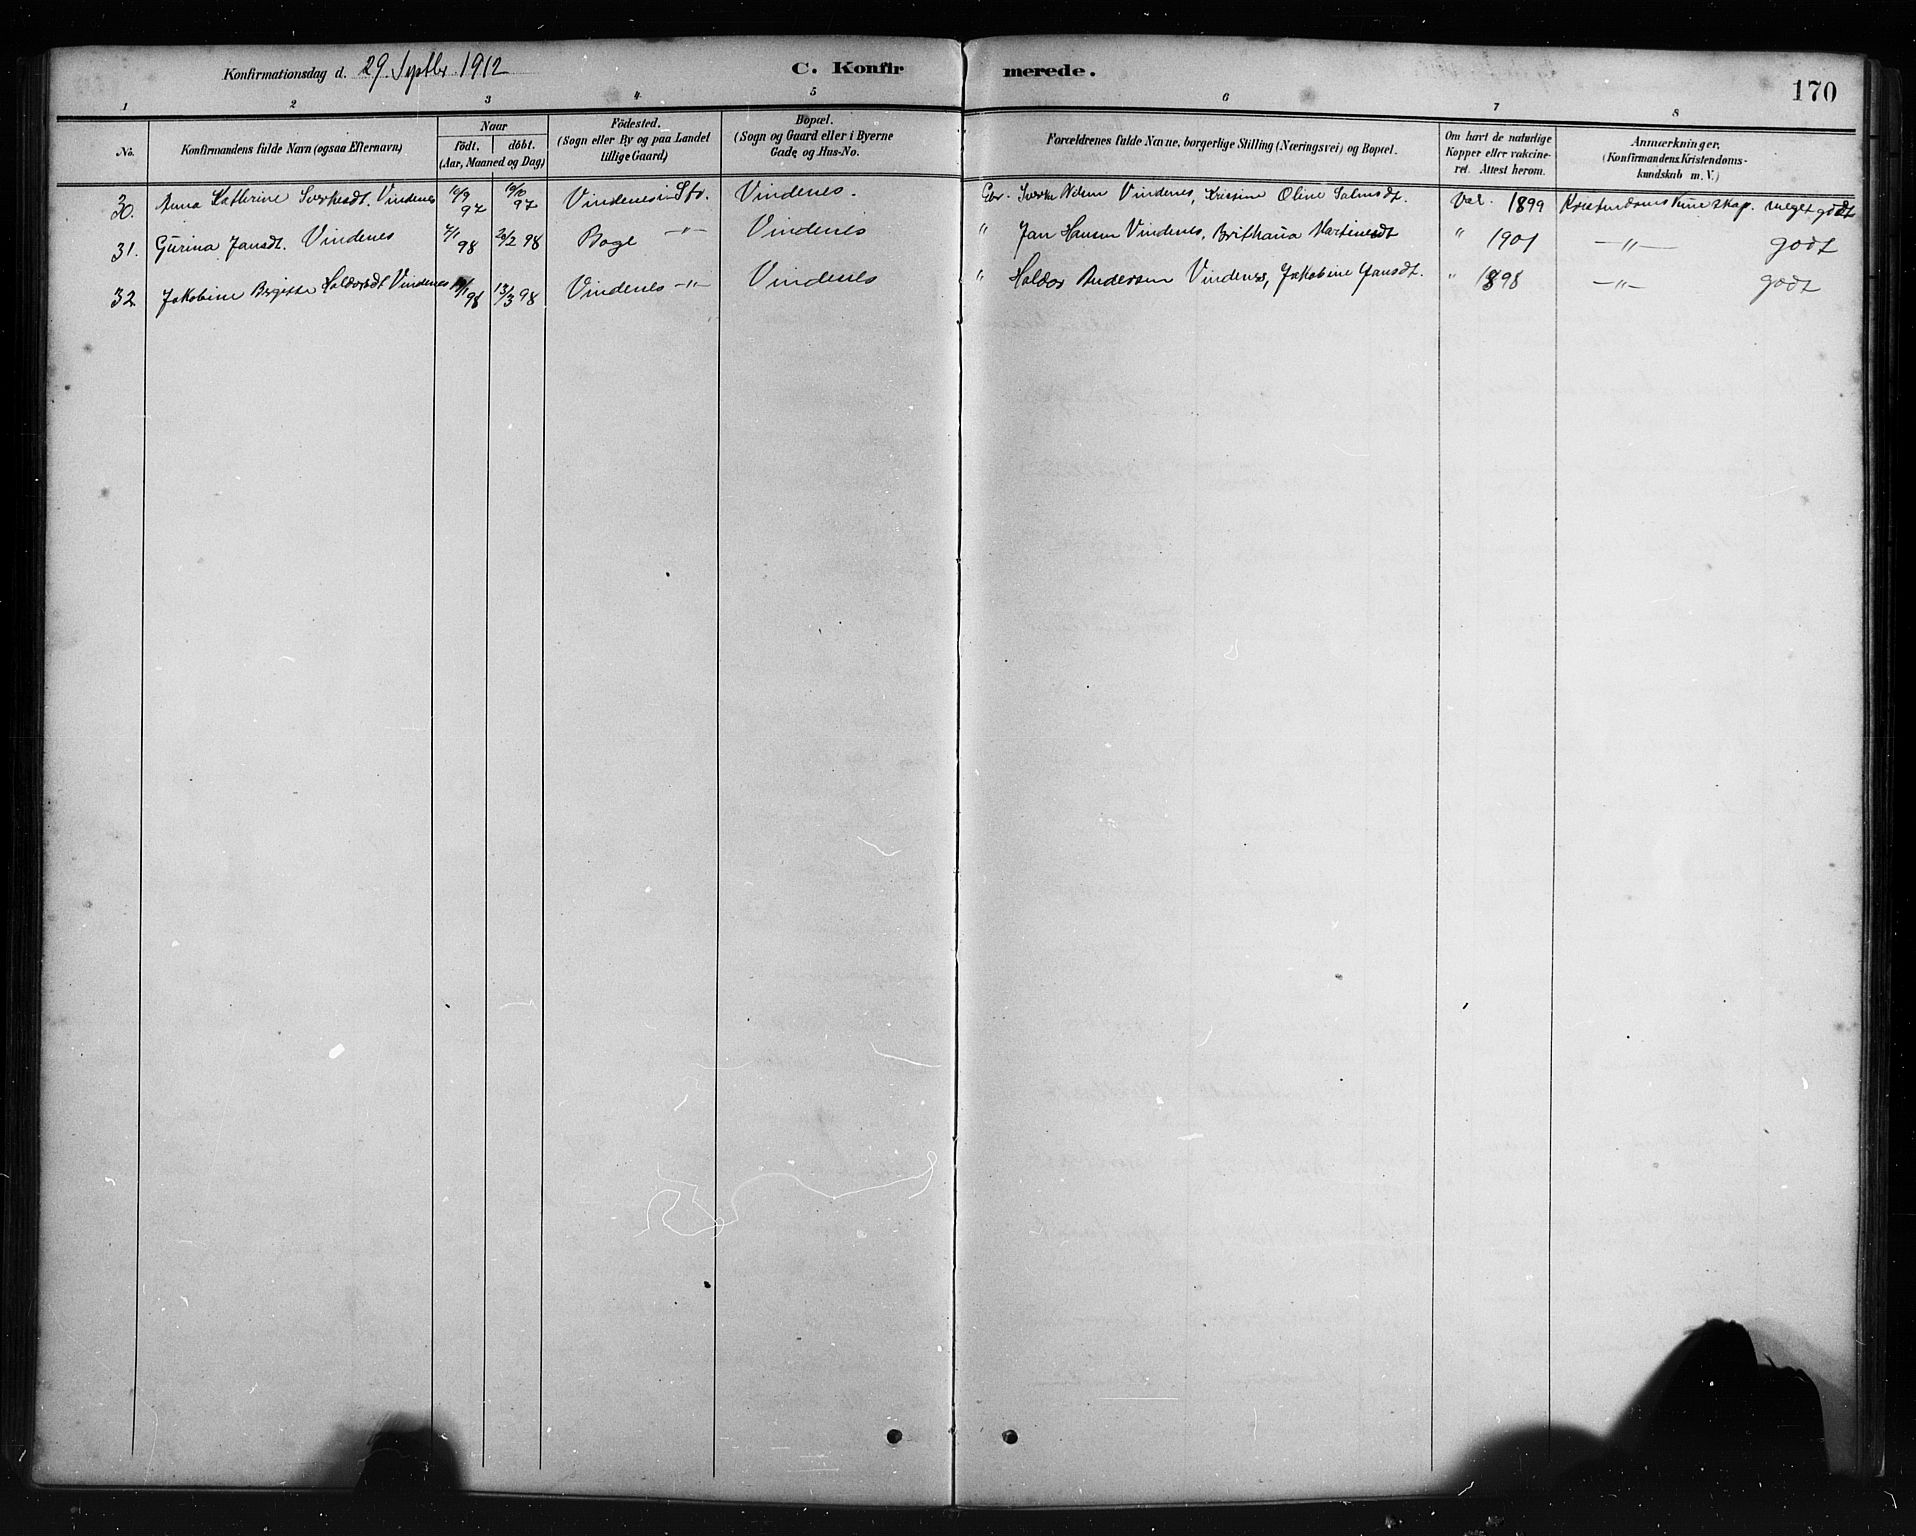 Konfirmationsdag d. 29. Septbr. 1912
C. Konfirmerede.
170
1 2 3 4 5 6 7 8
No.
Konfirmandens fulde Navn (ogsaa Efternavn)
Naar
födt. döbt.
(Aar, Maaned og Dag)
Födested.
(Sogn eller By og paa Landet
tillige Gaard)
Bopæl.
(Sogn og Gaard eller i Byerne
Gade og Hus-No.
Forældrenes fulde Navne, borgerlige Stilling (Næringsvei) og Bopæl.
Om havt de naturlige
Kopper eller vakcine-
ret. Attest herom.
Anmærkninger,
(Konfirmandens Kristendoms-
kundskab m. V.)
30. Anna Katherine Sverkesdt. Vindenes 97 97 Vindenes i Str. Vindenes. Gbr. Sverke Nilsen Vindenes, Kristine Oline Salmsdt. Vac. 1899 Kristendomskunnskap. meget godt
31. Gurina Jansdt. Vindenes 7/1 98 20/2 98 Boge -"- Vindenes " Jan Hansen Vindenes, Brithana Martinesdt " 1901 -"- godt
32 Jakobine Bergitte Haldorsdt Vindenes 98 13/3 98 Vindenes -"- Vindenes " Haldor Andersen Vindenes, Jakobine Jansdt. " 1898 -"- godt